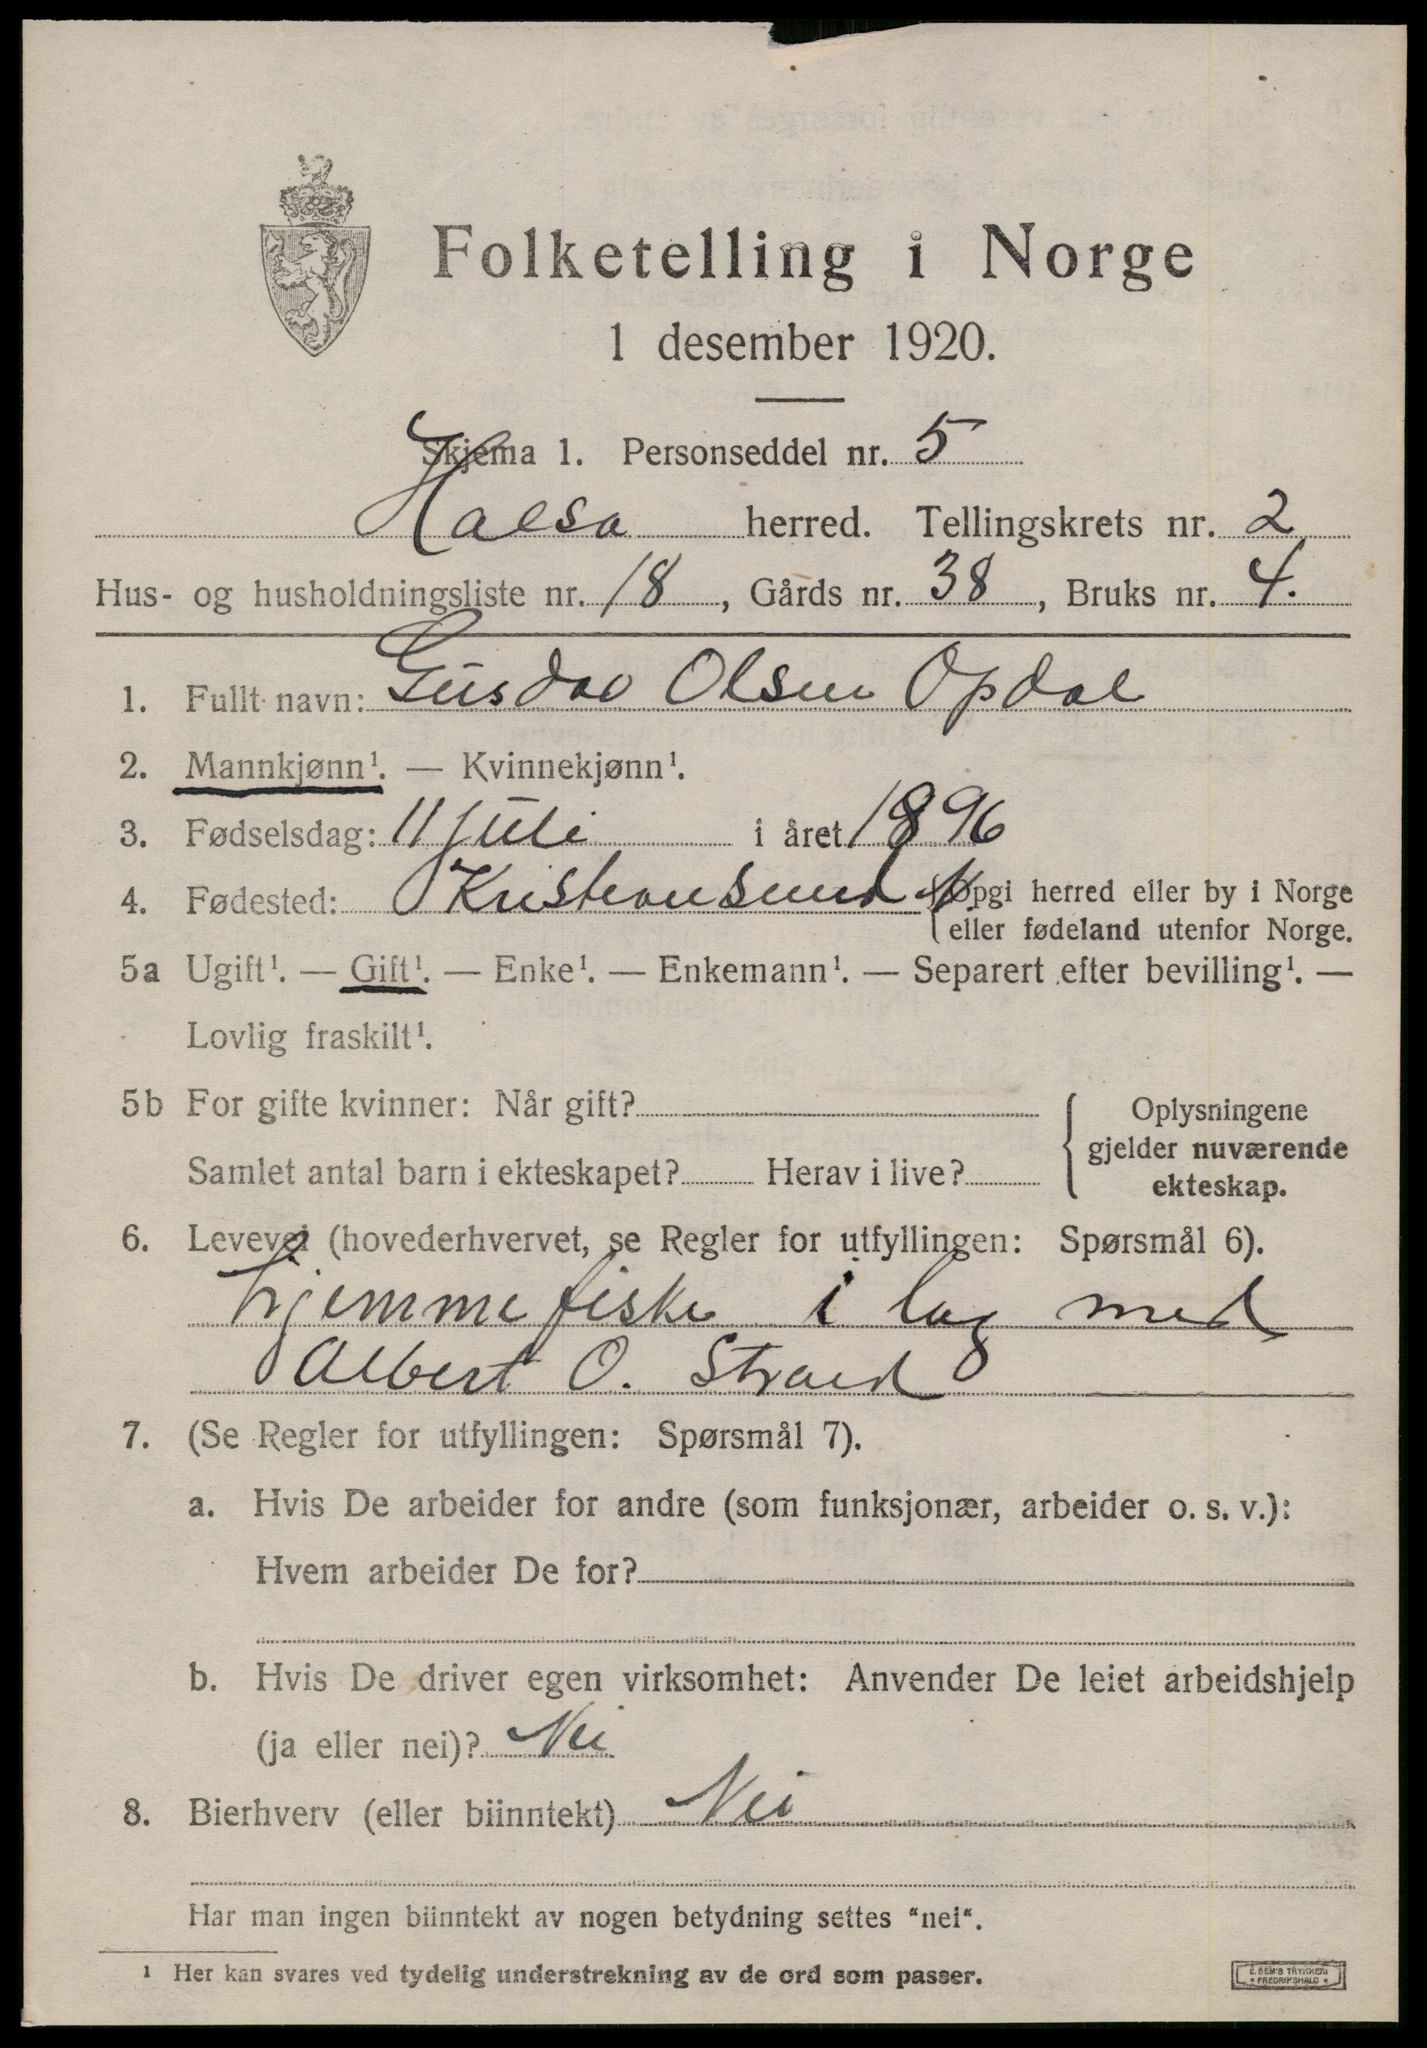 Folketelling i Norge
1 desember 1920.
Skjema 1. Personseddel nr. 5
Halsa herred. Tellingskrets nr. 2
Hus- og husholdningsliste nr. 18, Gårds nr. 38, Bruks nr. 4.
1. Fullt navn: Gusdav Olsen Opdal
2. Mannkjønn¹. — Kvinnekjønn¹.
3. Fødselsdag: 11 juli i året 1896
4. Fødested: Kristiansund N. Opgi herred eller by i Norge
eller fødeland utenfor Norge.
5a Ugift¹. — Gift¹. — Enke¹. — Enkemann¹. — Separert efter bevilling¹. —
Lovlig fraskilt¹.
5b For gifte kvinner: Når gift?
Samlet antal barn i ekteskapet? Herav i live?
Oplysningene
gjelder nuværende
ekteskap.
6. Levevei (hovederhvervet, se Regler for utfyllingen: Spørsmål 6).
hjemmefiske i lag med
Albert O. Strand
7. (Se Regler for utfyllingen: Spørsmål 7).
a. Hvis De arbeider for andre (som funksjonær, arbeider o. s. v.):
Hvem arbeider De for?
b. Hvis De driver egen virksomhet: Anvender De leiet arbeidshjelp
(ja eller nei)? Nei
8. Bierhverv (eller biinntekt) Nei
Har man ingen biinntekt av nogen betydning settes "nei".
¹ Her kan svares ved tydelig understrekning av de ord som passer.
E. SEM'S TRYKKERI
• FREDRIKSHALD •